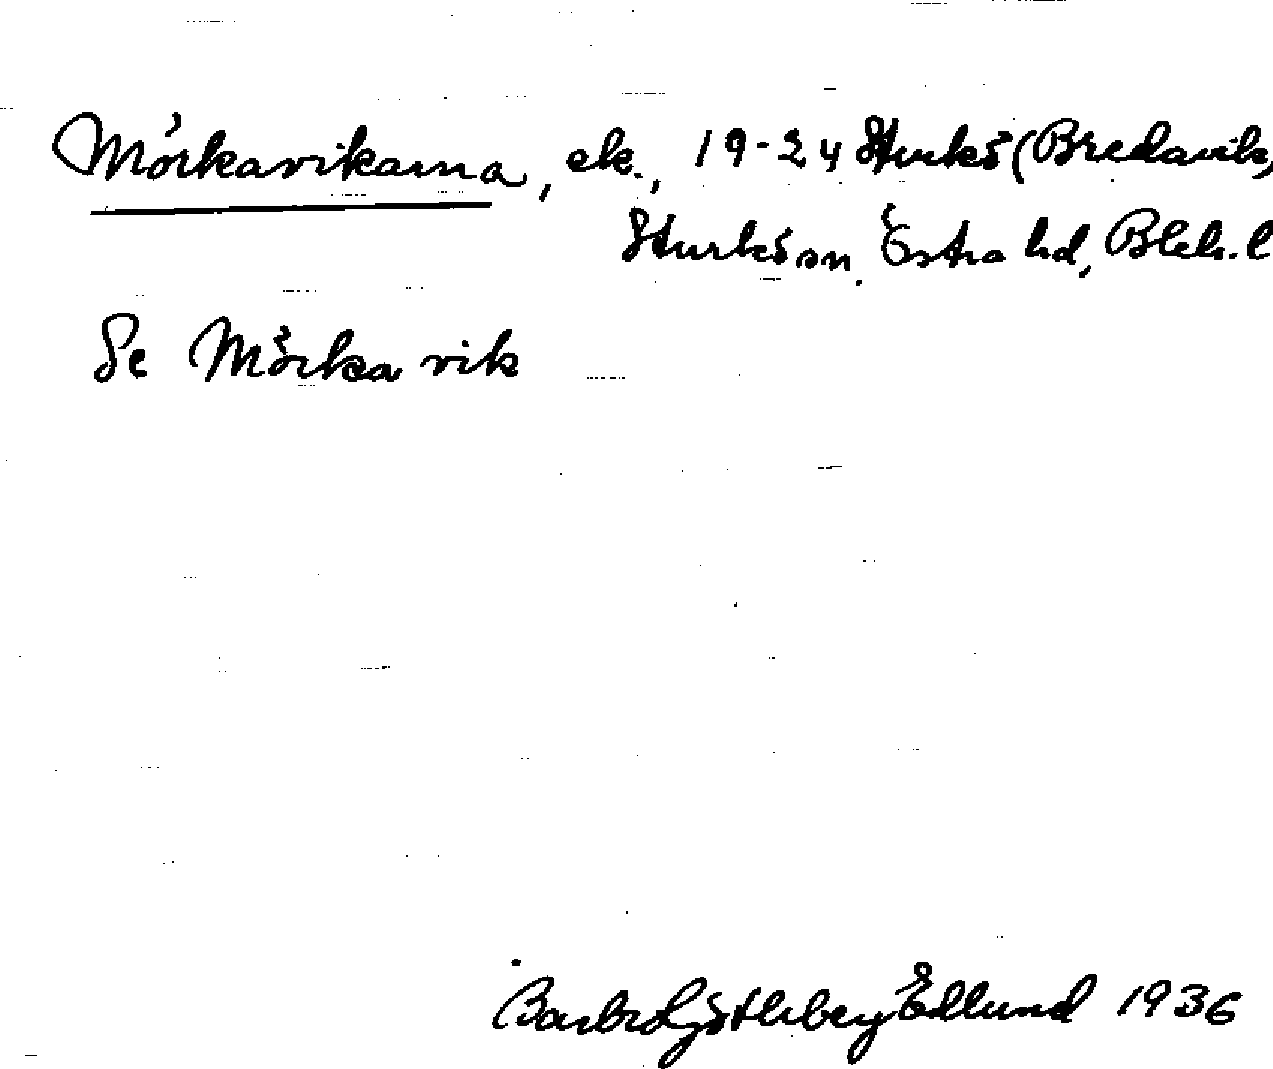 Mörkavikarna, ek., 19-24 Sturkö (Bredavik,
Sturkö sn. Östra hd, Blek. l
Se Mörka vik
Barbro Götlebey Edlund 1936